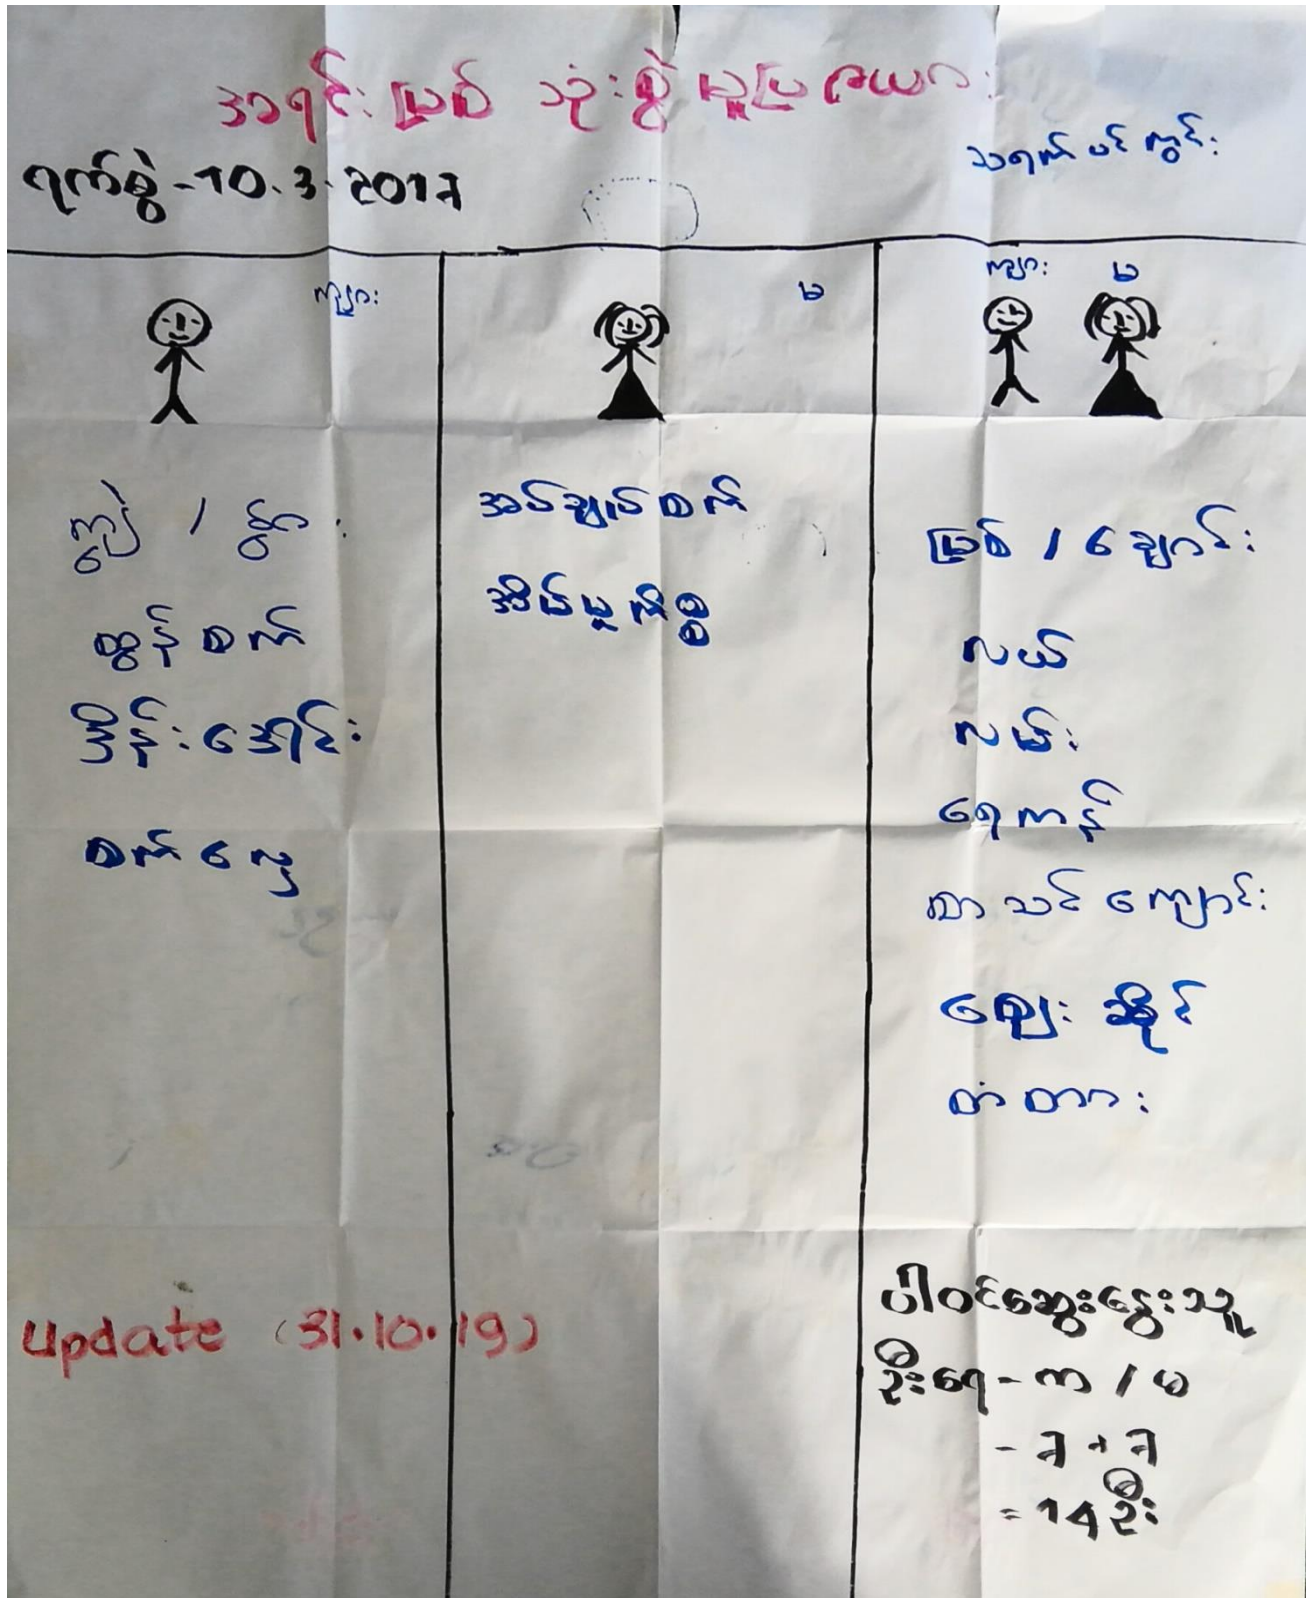 အရင်းမြစ် သုံးစွဲမှုပြဇယား
သရက်ပင်ကွင်း
ရက်စွဲ-10.3.2017
ကျား
မ
ကျား မ
ကျွဲ / နွား
ထွန်စက်
ဒိန်းအောင်း
စက်လှေ
အပ်ချုပ်စက်
အိမ်မှုကိစ္စ
မြစ် / ချောင်း
လယ်
လမ်း
ရေကန်
စာသင်ကျောင်း
ဈေးဆိုင်
တံတား
update (31.10.19)
ပါဝင်ဆွေးနွေးသူ
ဦးရေ - ကာ / မ
- 7 + 7
= 14 ဦး